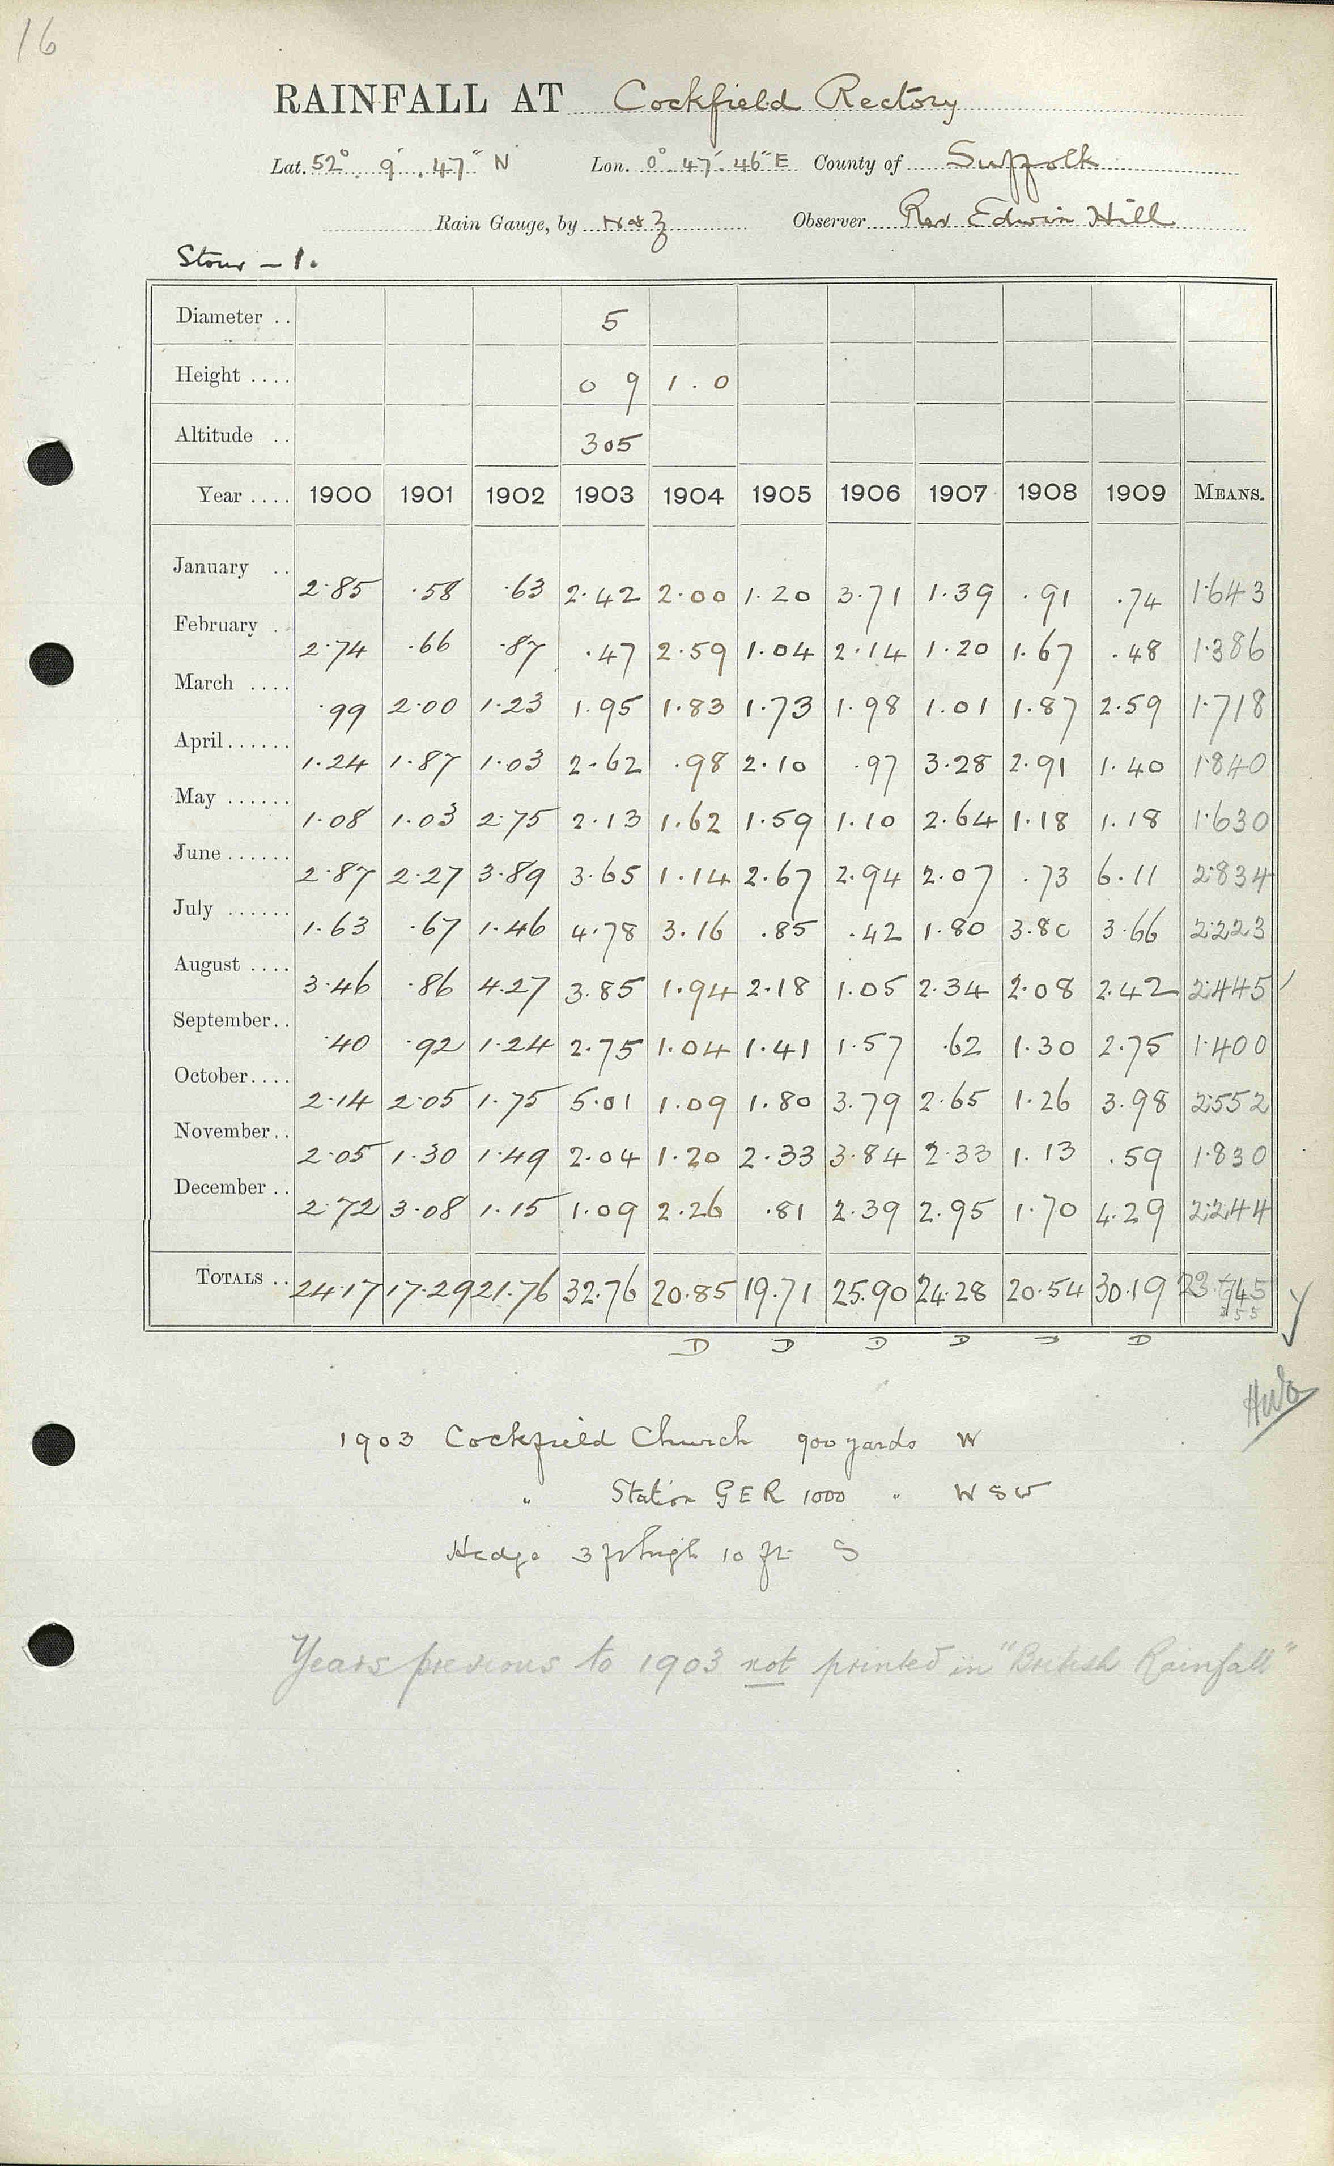 16
RAINFALL AT Cockfield Rectory
Lat. 52° 9' 47" N Lon. 0° 47' 46" E County of Suffolk
Rain Gauge, by N & Z Observer Rev Edwin Hill
Stour - 1.
Diameter .. 5
Height .... 0 9 1.0
Altitude .. 305
Year .... 1900 1901 1902 1903 1904 1905 1906 1907 1908 1909 MEANS.
January .. 2.85 .58 .63 2.42 2.00 1.20 3.71 1.39 .91 .74 1.643
February . 2.74 .66 .87 .47 2.59 1.04 2.14 1.20 1.67 .48 1.386
March .... .99 2.00 1.23 1.95 1.83 1.73 1.98 1.01 1.87 2.59 1.718
April...... 1.24 1.87 1.03 2.62 .98 2.10 .97 3.28 2.91 1.40 1.840
May ...... 1.08 1.03 2.75 2.13 1.62 1.59 1.10 2.64 1.18 1.18 1.630
June...... 2.87 2.27 3.89 3.65 1.14 2.67 2.94 2.07 .73 6.11 2.834
July ...... 1.63 .67 1.46 4.78 3.16 .85 .42 1.80 3.80 3.66 2.223
August .... 3.46 .86 4.27 3.85 1.94 2.18 1.05 2.34 2.08 2.42 2.445
September.. .40 .92 1.24 2.75 1.04 1.41 1.57 .62 1.30 2.75 1.400
October.... 2.14 2.05 1.75 5.01 1.09 1.80 3.79 2.65 1.26 3.98 2.552
November.. 2.05 1.30 1.49 2.04 1.20 2.33 3.84 2.33 1.13 .59 1.830
December .. 2.72 3.08 1.15 1.09 2.26 .81 2.39 2.95 1.70 4.29 2.244
TOTALS .. 24.17 17.29 21.76 32.76 20.85 19.71 25.90 24.28 20.54 30.19 23.745
D D D D D D
1903 Cockfield Church 900 yards W
" Station GER 1000 " WSW
Hedge 3 ft high 10 ft S
Years previous to 1903 not printed in "British Rainfall"